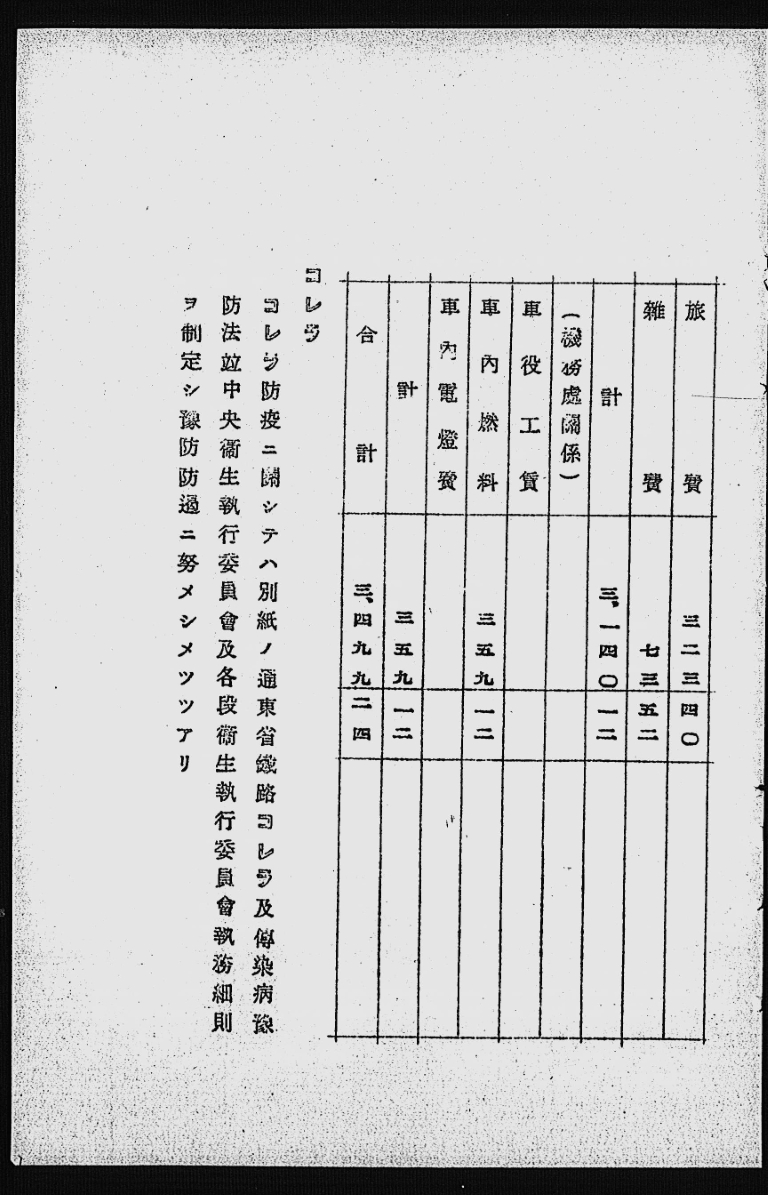 旅費 三二三四〇
雜費 七三五二
計 三、一四〇一二
(機務處關係)
車役工賃
車內燃料 三五九一二
車內電燈費
計 三五九一二
合計 三、四九九二四
コレラ
コレラ防疫ニ關シテハ別紙ノ通東省鐵路コレラ及傳染病豫
防法竝中央衞生執行委員會及各段衞生執行委員會執務細則
ヲ制定シ豫防防遏ニ努メシメツツアリ